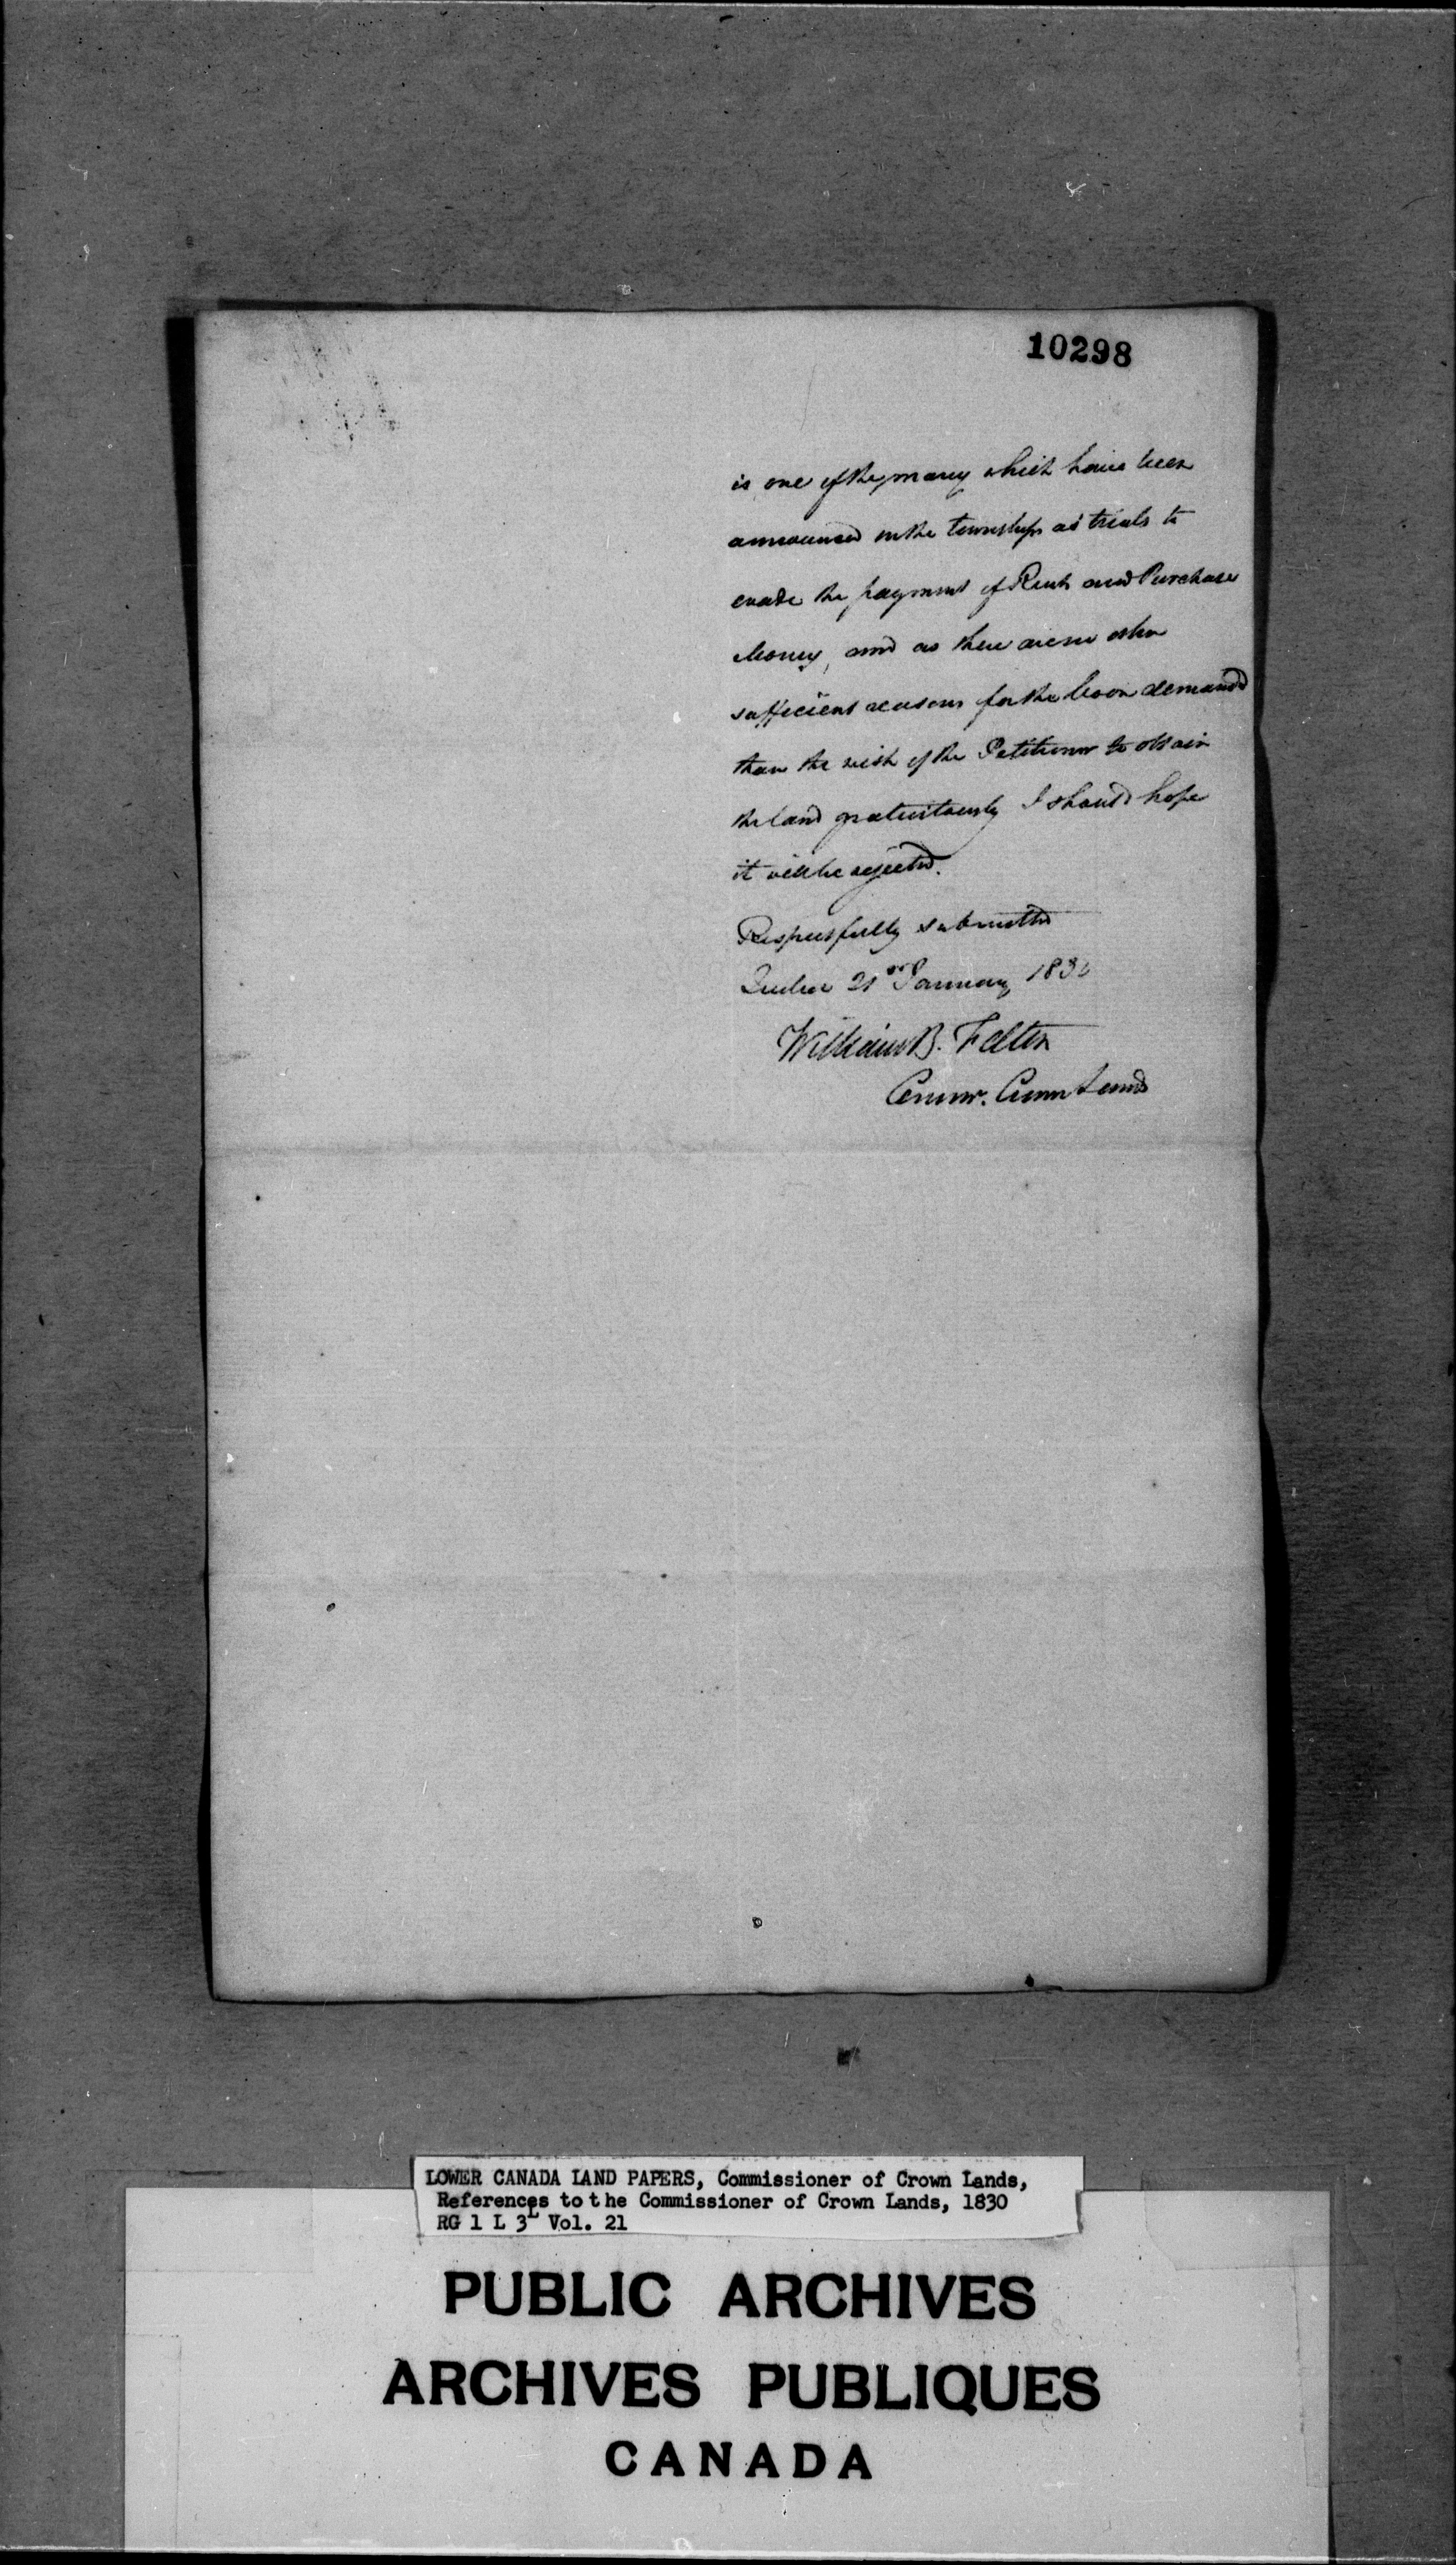 10298
is one of the many which have been
announced in the townships as trials to
evade the payment of Rents and Purchase
Money, and as there are no other
sufficient reasons for the boon demanded
than the wish of the Petitioner to obtain
the land gratuitously I should hope
it will be rejected.
Respectfully submitted
Quebec 21st January 1830
William B. Felton
Commr. Crown Lands
LOWER CANADA LAND PAPERS, Commissioner of Crown Lands,
References to the Commissioner of Crown Lands, 1830
RG 1 L 3L Vol. 21
PUBLIC ARCHIVES
ARCHIVES PUBLIQUES
CANADA